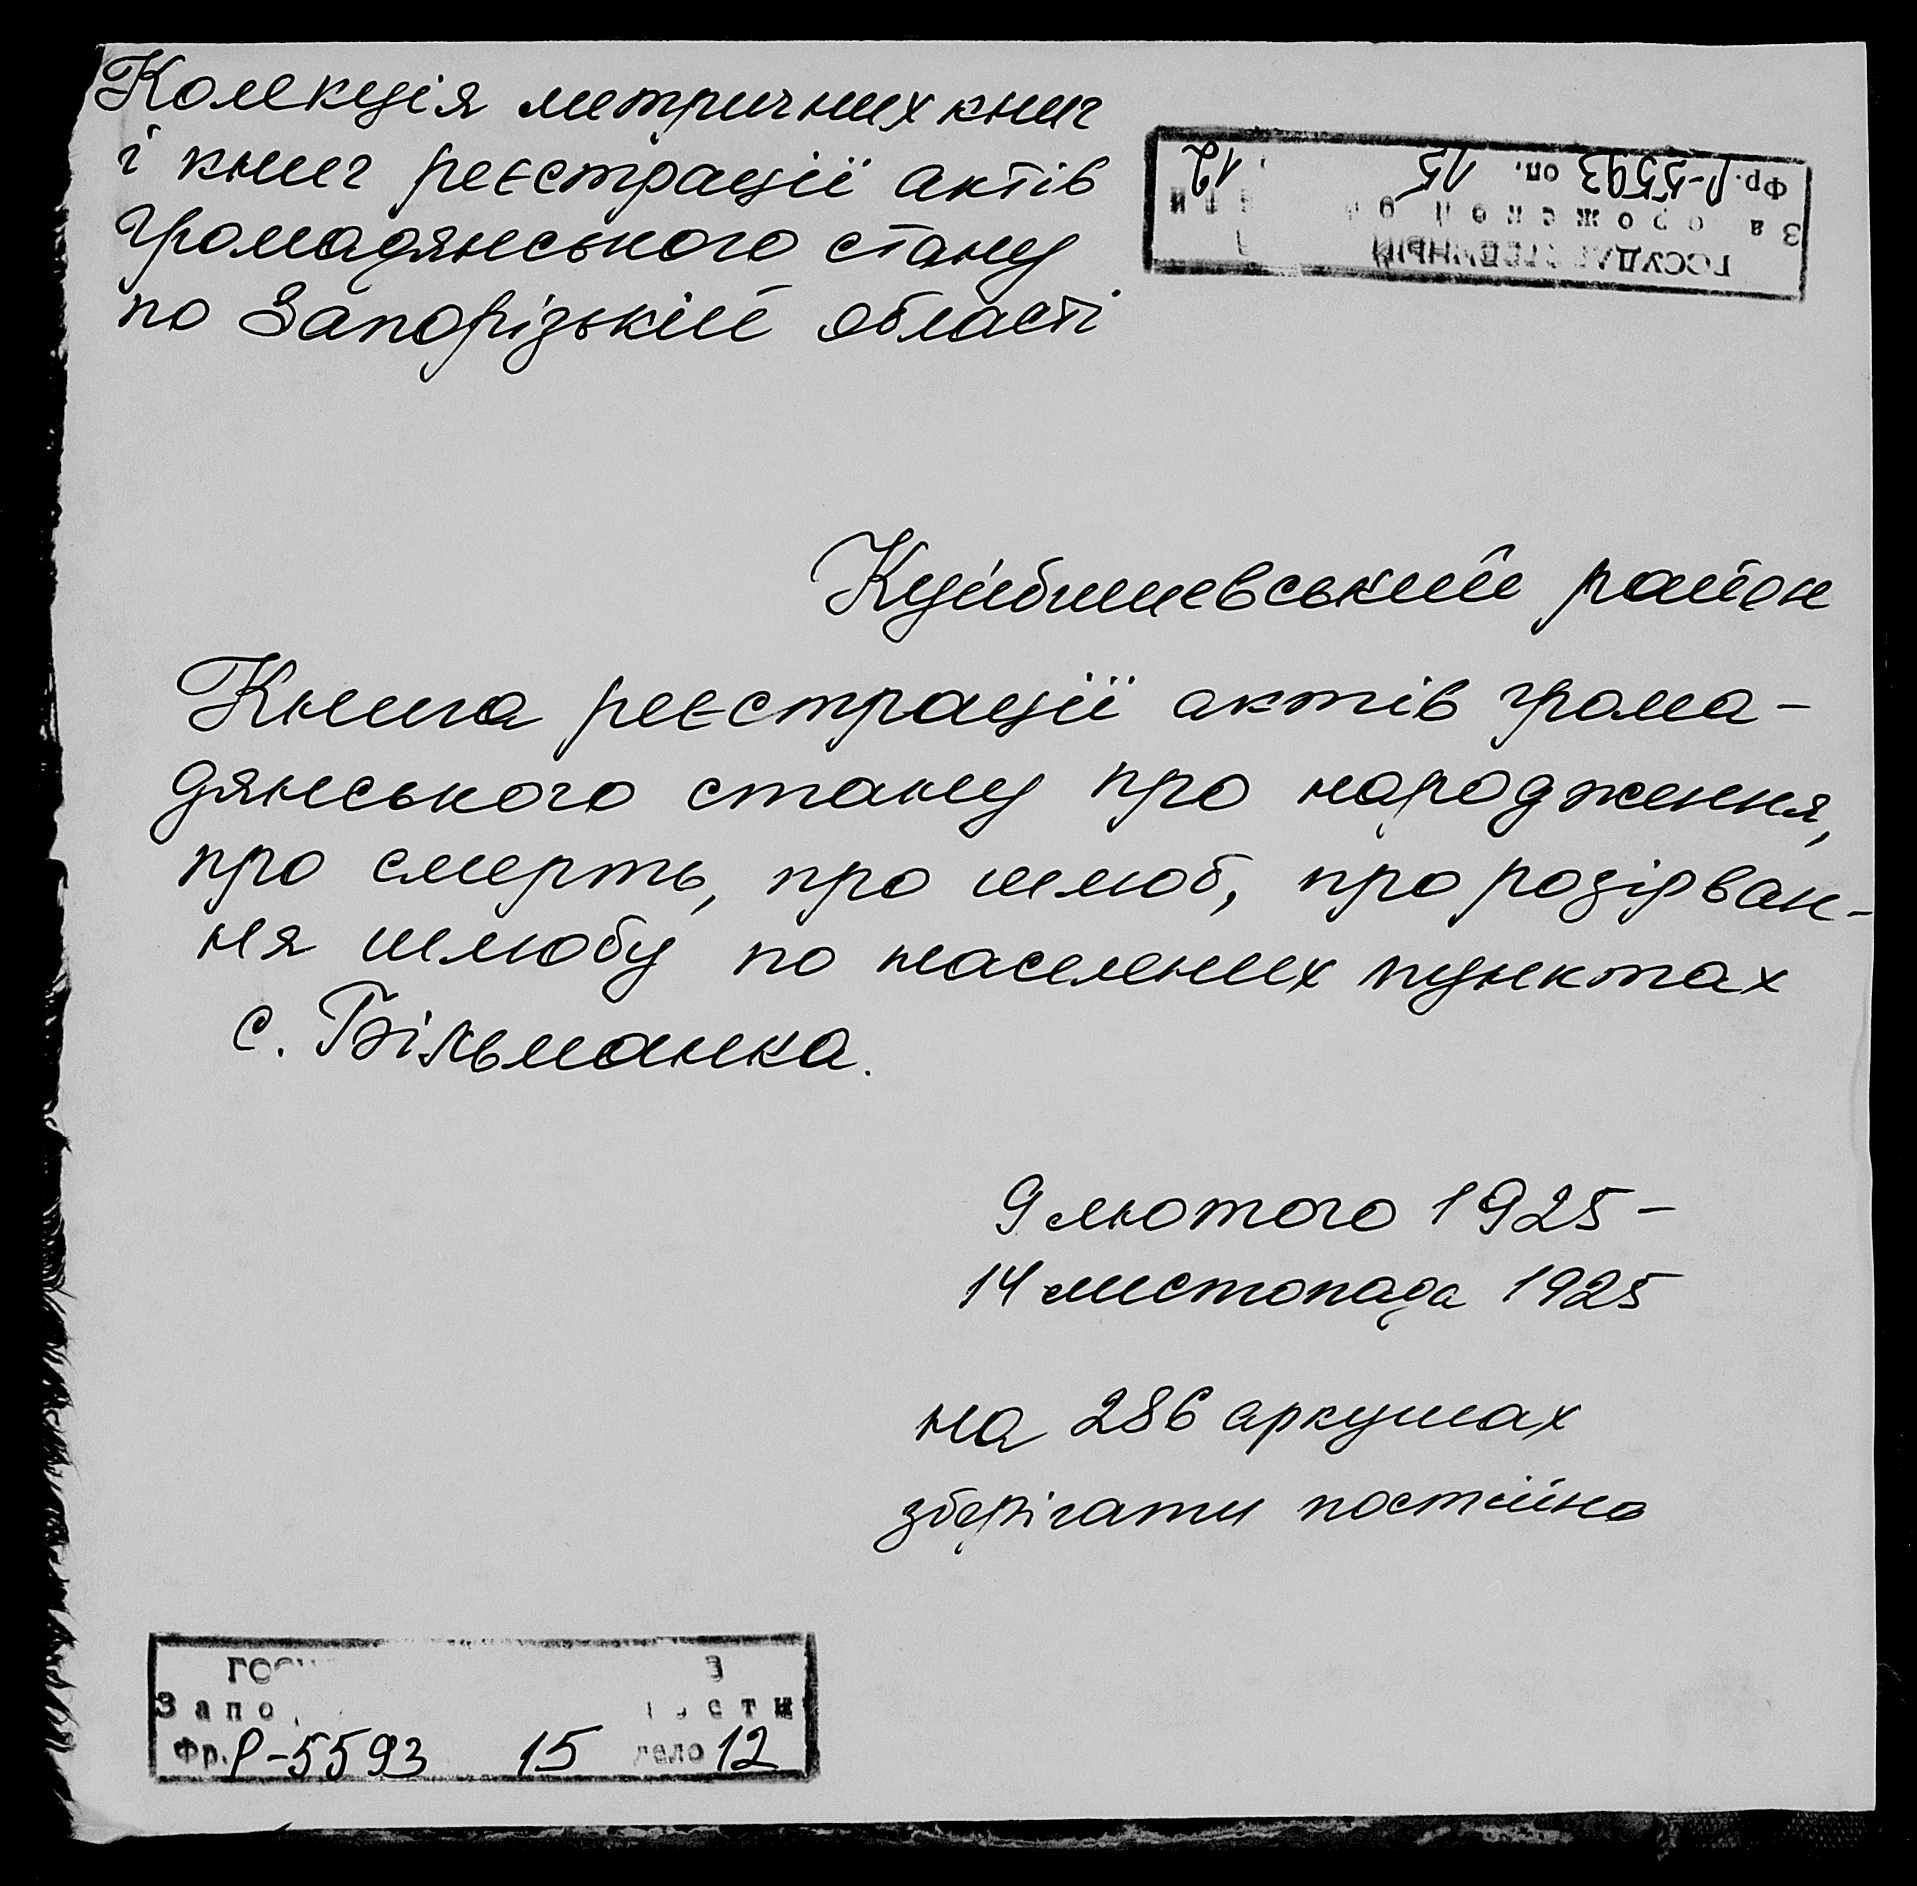 Колекція метричних книг
і книг реєстрації актів
громадянського стану
по Запорізькій області
Фр. Р-5593 оп. 15 12
Куйбишевський район
Книга реєстрації актів грома-
дянського стану про народження,
про смерть, про шлюб, про розірван-
ня шлюбу по населених пунктах
с. Більманка.
9 лютого 1925 -
14 листопада 1925
на 286 аркушах
зберігати постійно
Фр. Р-5593 15 дело 12